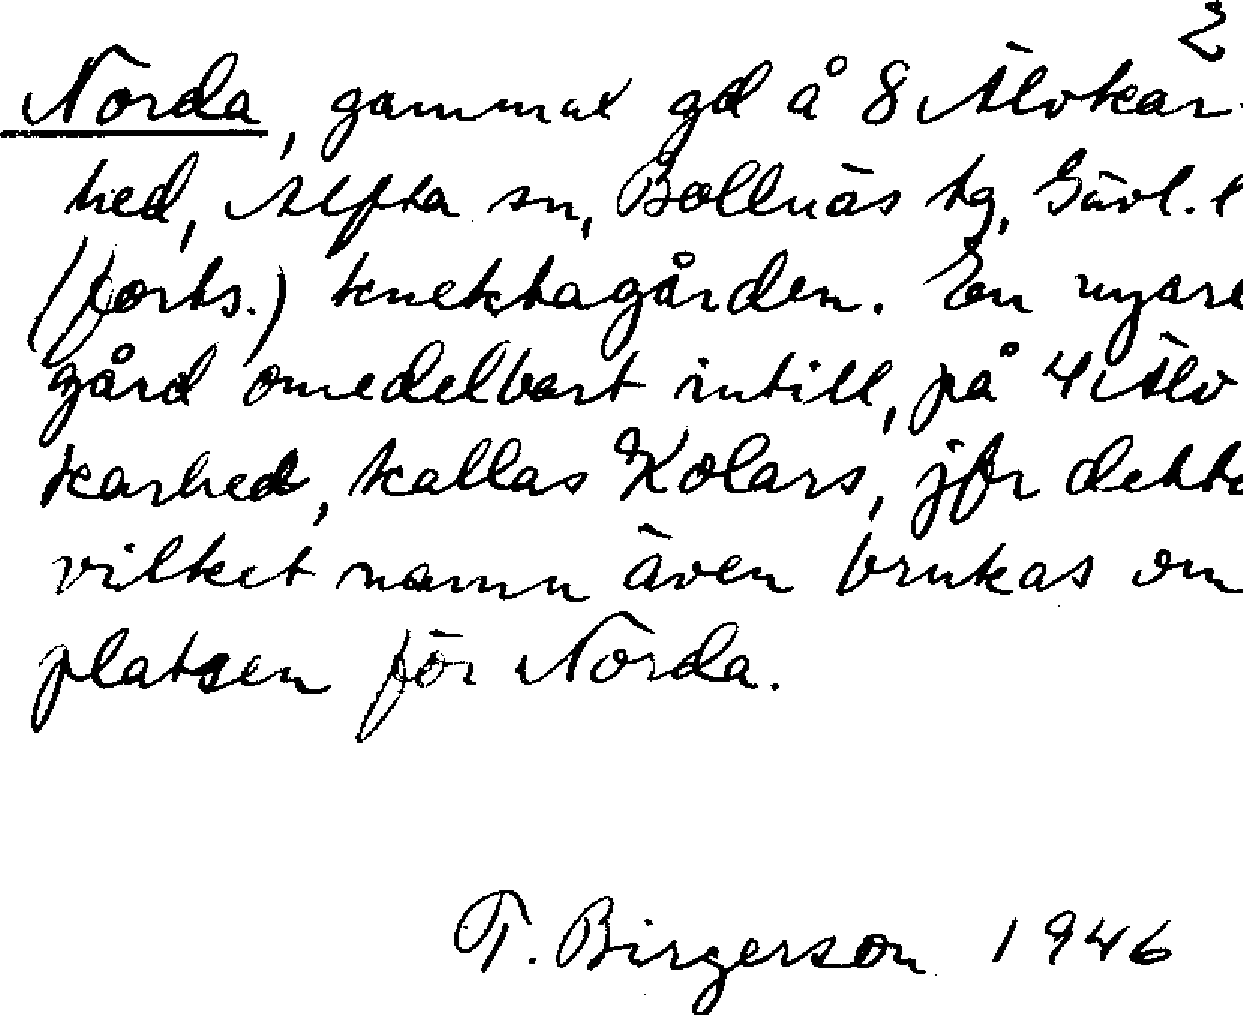 2
Norda, gammal gd å 8 Älvkar-
hed, Alfta sn, Bollnäs tg, Gävl. l
(forts.) knektagården. En nyare
gård omedelbart intill, på 4 Älv
karhed, kallas Kolars, jfr detta
vilket namn även brukas om
platsen för Norda.
T. Birgerson 1946